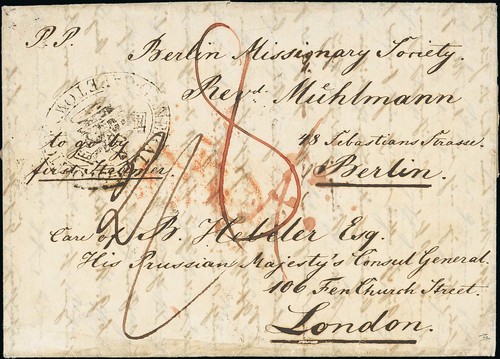 P.P.
Berlin Missionary Society.
Revd. Mühlmann
48 Sebastians Strasse.
Berlin.
to go by
first Steamer.
8
Care of B. Hebeler Esq.
His Prussian Majesty's Consul General.
106 Fen Church Street.
London.